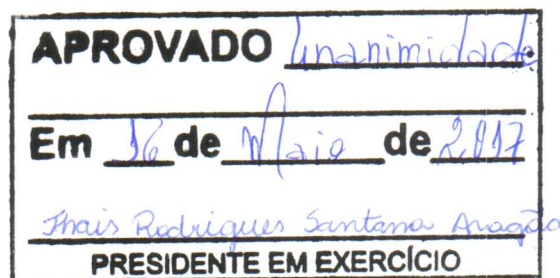 APROVADO Unanimidade
Em 16 de Maio de 2017
Thais Rodrigues Santana Aragão
PRESIDENTE EM EXERCÍCIO